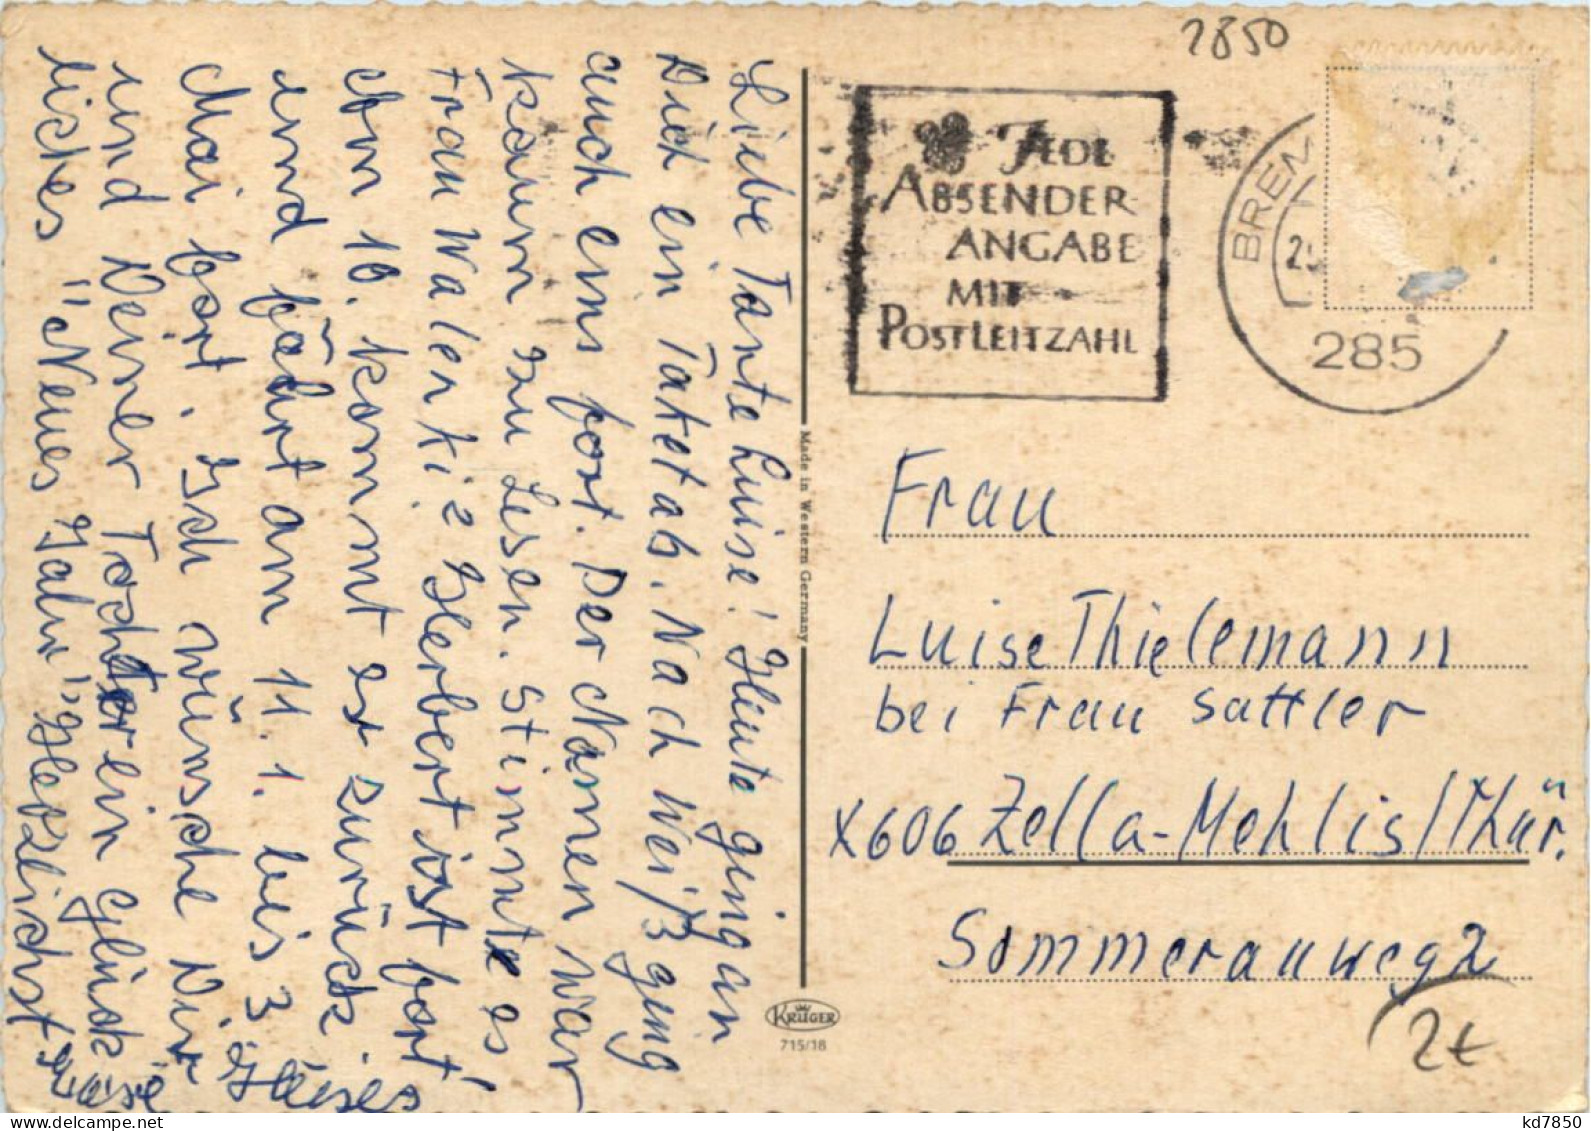 Liebe Tante Luise! Heute ging an
Dich ein Paket ab. Nach Weiß ging
auch eins fort. Der Namen war
kaum zu Lesen. Stimmte es
Frau Walerki? Herbert ist fort!
Am 10. kommt er zurück
und fährt am 11. 1. bis 3
Mai fort. Ich wünsche Dir
und Deiner Tochter ein glück
liches "Neues Jahr". Herzlichst
2850
JEDE
ABSENDER
ANGABE
MIT
POSTLEITZAHL
BREM
285
Made in Western Germany
KRÜGER
715/18
Frau
Luise Thielemann
bei Frau Sattler
X606 Zella-Mehlis/Thür.
Sommerauweg 2
2€
www.delcampe.net
kd7850